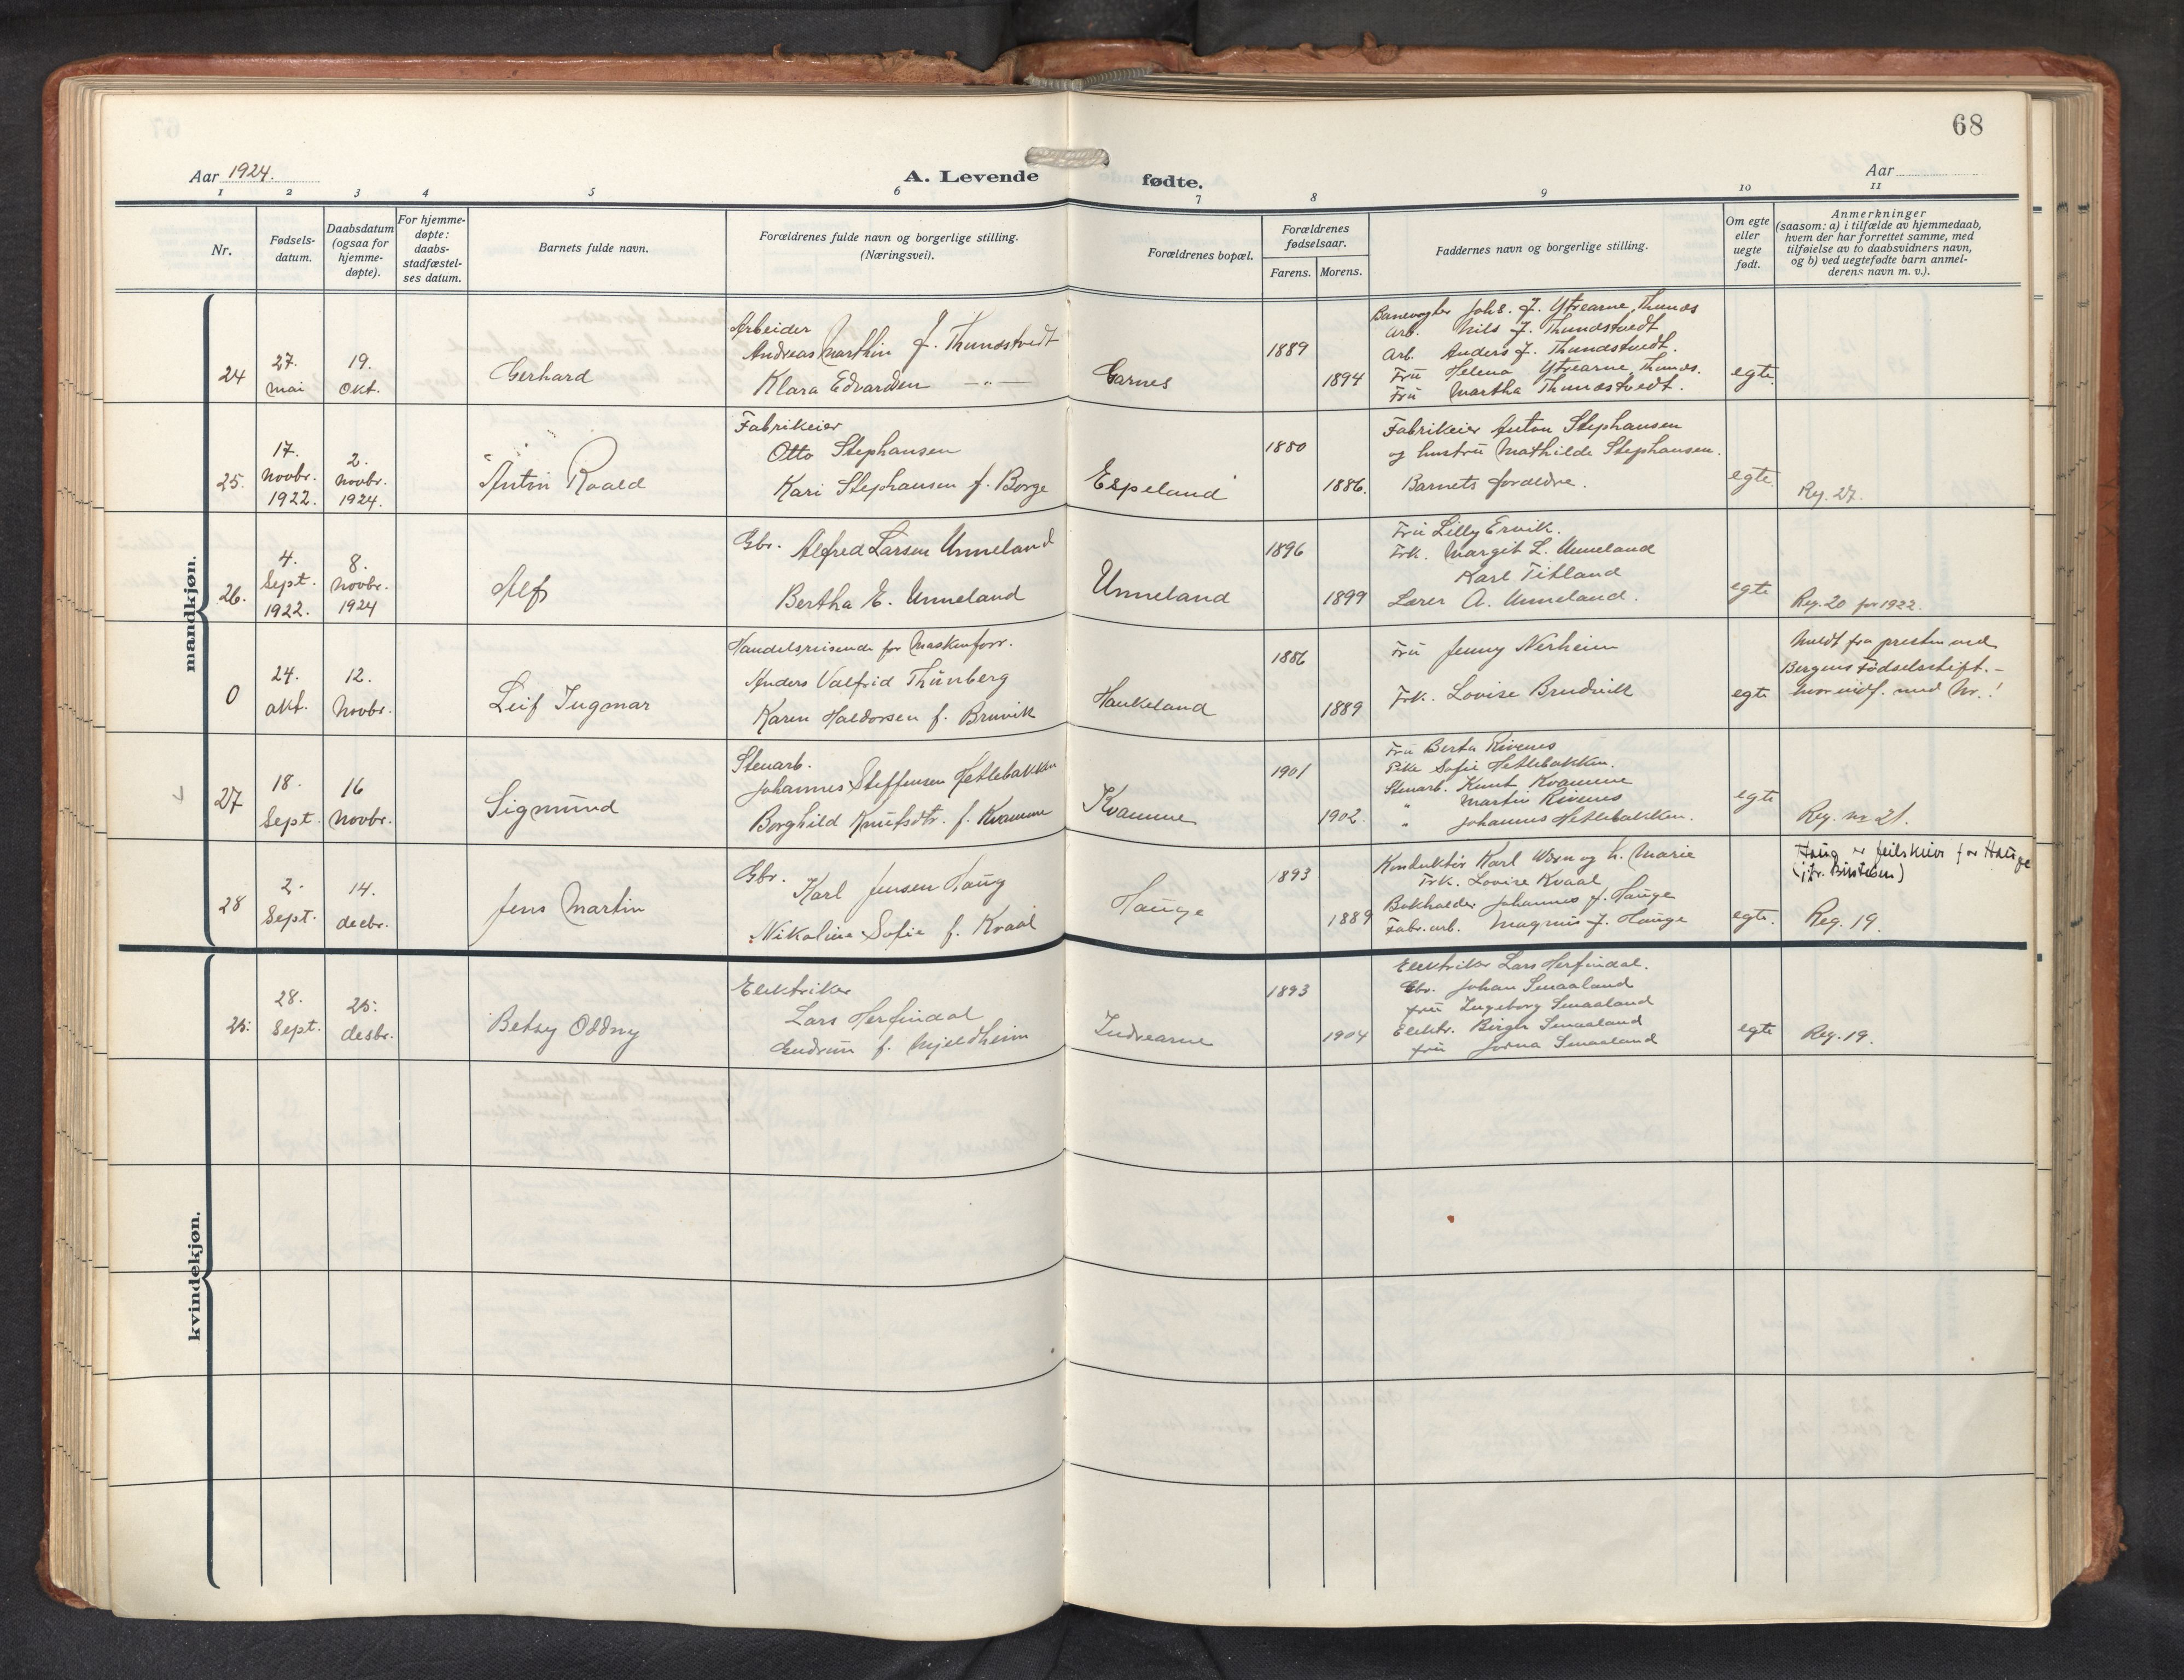 68
Aar 1924.
A. Levende fødte.
Aar
1 2 3 4 5 6 7 8 9 10 11
Nr.
Fødsels-
datum.
Daabsdatum
(ogsaa for
hjemme-
døpte).
For hjemme-
døpte:
daabs-
stadfæstel-
ses datum.
Barnets fulde navn.
Forældrenes fulde navn og borgerlige stilling.
(Næringsvei).
Forældrenes bopæl.
Forældrenes
fødselsaar.
Farens. Morens.
Faddernes navn og borgerlige stilling.
Om egte
eller
uegte
født.
Anmerkninger
(saasom: a) i tilfælde av hjemmedaab,
hvem der har forrettet samme, med
tilføielse av to daabsvidners navn,
og b) ved uegtefødte barn anmel-
derens navn m. v.).
mandkjøn.
24
27.
mai
19.
okt.
Gerhard
Arbeider
Andreas Marthin J. Thunestvedt
Klara Edvardsen — „ —
Garnes
1889
1894
Banevogter Johs. J. Ytrearne, Thunes
Arb. Nils J. Thunestvedt
Arb. Anders J. Thunestvedt.
Fru Helena Ytrearne, Thunes.
Fru Martha Thunestvedt.
egte.
25.
17.
Novbr.
1922.
2.
Novbr.
1924.
Anton Roald
Fabrikeier
Otto Stephansen
Kari Stephansen f. Borge
Espeland
1880
1886.
Fabrikeier Anton Stephansen
og hustru Mathilde Stephansen.
Barnets forældre.
egte.
Reg. 27.
26.
4.
Sept.
1922.
8.
Novbr.
1924
Alf
Gbr. Alfred Larsen Unneland
Bertha E. Unneland
Unneland
1896
1899
Fru Lilly Ervik.
Frk. Margit L. Unneland
Karl Titland
Lærer A. Unneland.
egte
Reg. 20 for 1922.
0
24.
okt.
12.
Novbr.
Leif Ingmar
Handelsreisende for Maskinforr.
Anders Valfrid Thunberg
Karen Haldorsen f. Bruvik
Haukeland
1886
1889
Fru Jenny Nerheim
Frk. Lovise Brudvik
egte
Meldt fra presten ved
Bergens Fødselsstift. -
hvor indf. med Nr.!
27
18.
Sept.
16
Novbr.
Sigmund
Stenarb.
Johannes Steffensen Hetlebakken
Borghild Knutsdtr. f. Kvamme
Kvamme
1901
1902.
Fru Berta Rivenes
Pike Sofie Hetlebakken.
Stenarb. Knut Kvamme
„ Martin Rivenes
„ Johannes Hetlebakken.
egte
Reg. nr 21.
28
2.
Sept.
14.
decbr.
Jens Martin
Gbr.
Karl Jensen Haug
Nikoline Sofie f. Kvaal
Hauge
1893
1889
Konduktør Karl Worn og h. Marie
Frk. Lovise Kvaal
Bokholder Johannes J. Hauge
Fabr.arb. Magnus J. Hauge
egte.
Haug er feilskriv for Hauge
Reg. 19.
kvindekjøn.
25.
28.
Sept.
25.
desbr.
Betsy Oddny
Elektriker
Lars Herfindal
Gudrun f. Mjeldheim
Indrearne
1893
1904
Elektriker Lars Herfindal.
Gbr. Johan Smaaland
fru Ingeborg Smaaland
Elektr. Birger Smaaland
fru Smaaland
egte
Reg. 19.